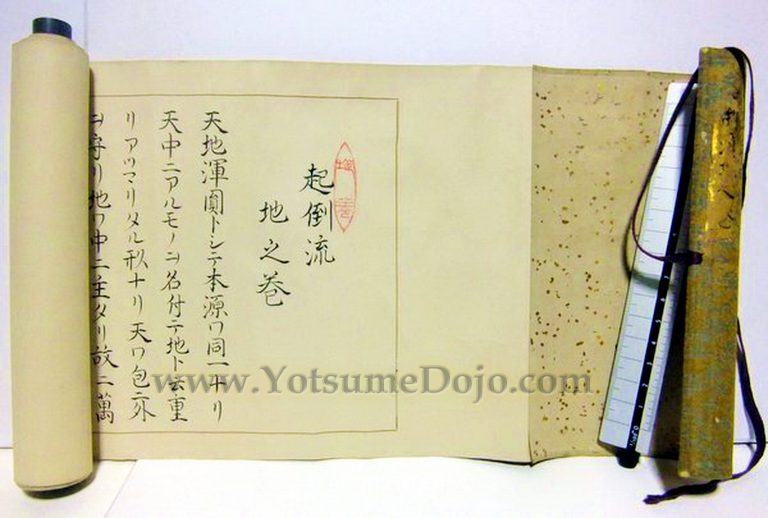 起倒流
地之巻
天地渾圓トシテ本源ワ同一ナリ
天中ニアルモノヲ名付テ地ト云重
リアツマリタル形ナリ天ワ包テ外
ヲ守リ地ワ中ニ主タリ故ニ萬
www.YotsumeDojo.com